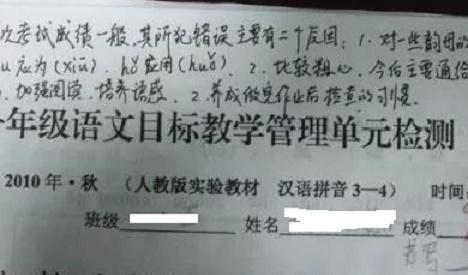 次考试成绩一般，其所犯错误主要有二个原因：1．对一些韵母的
u应为(xiū) hǒ应用(huǒ)．2．比较粗心，今后主要通
．加强阅读，培养语感．2．养成做完作业后检查的习惯．
年级语文目标教学管理单元检测
2010年·秋 （人教版实验教材 汉语拼音3—4） 时间：
班级 姓名 成绩
书写